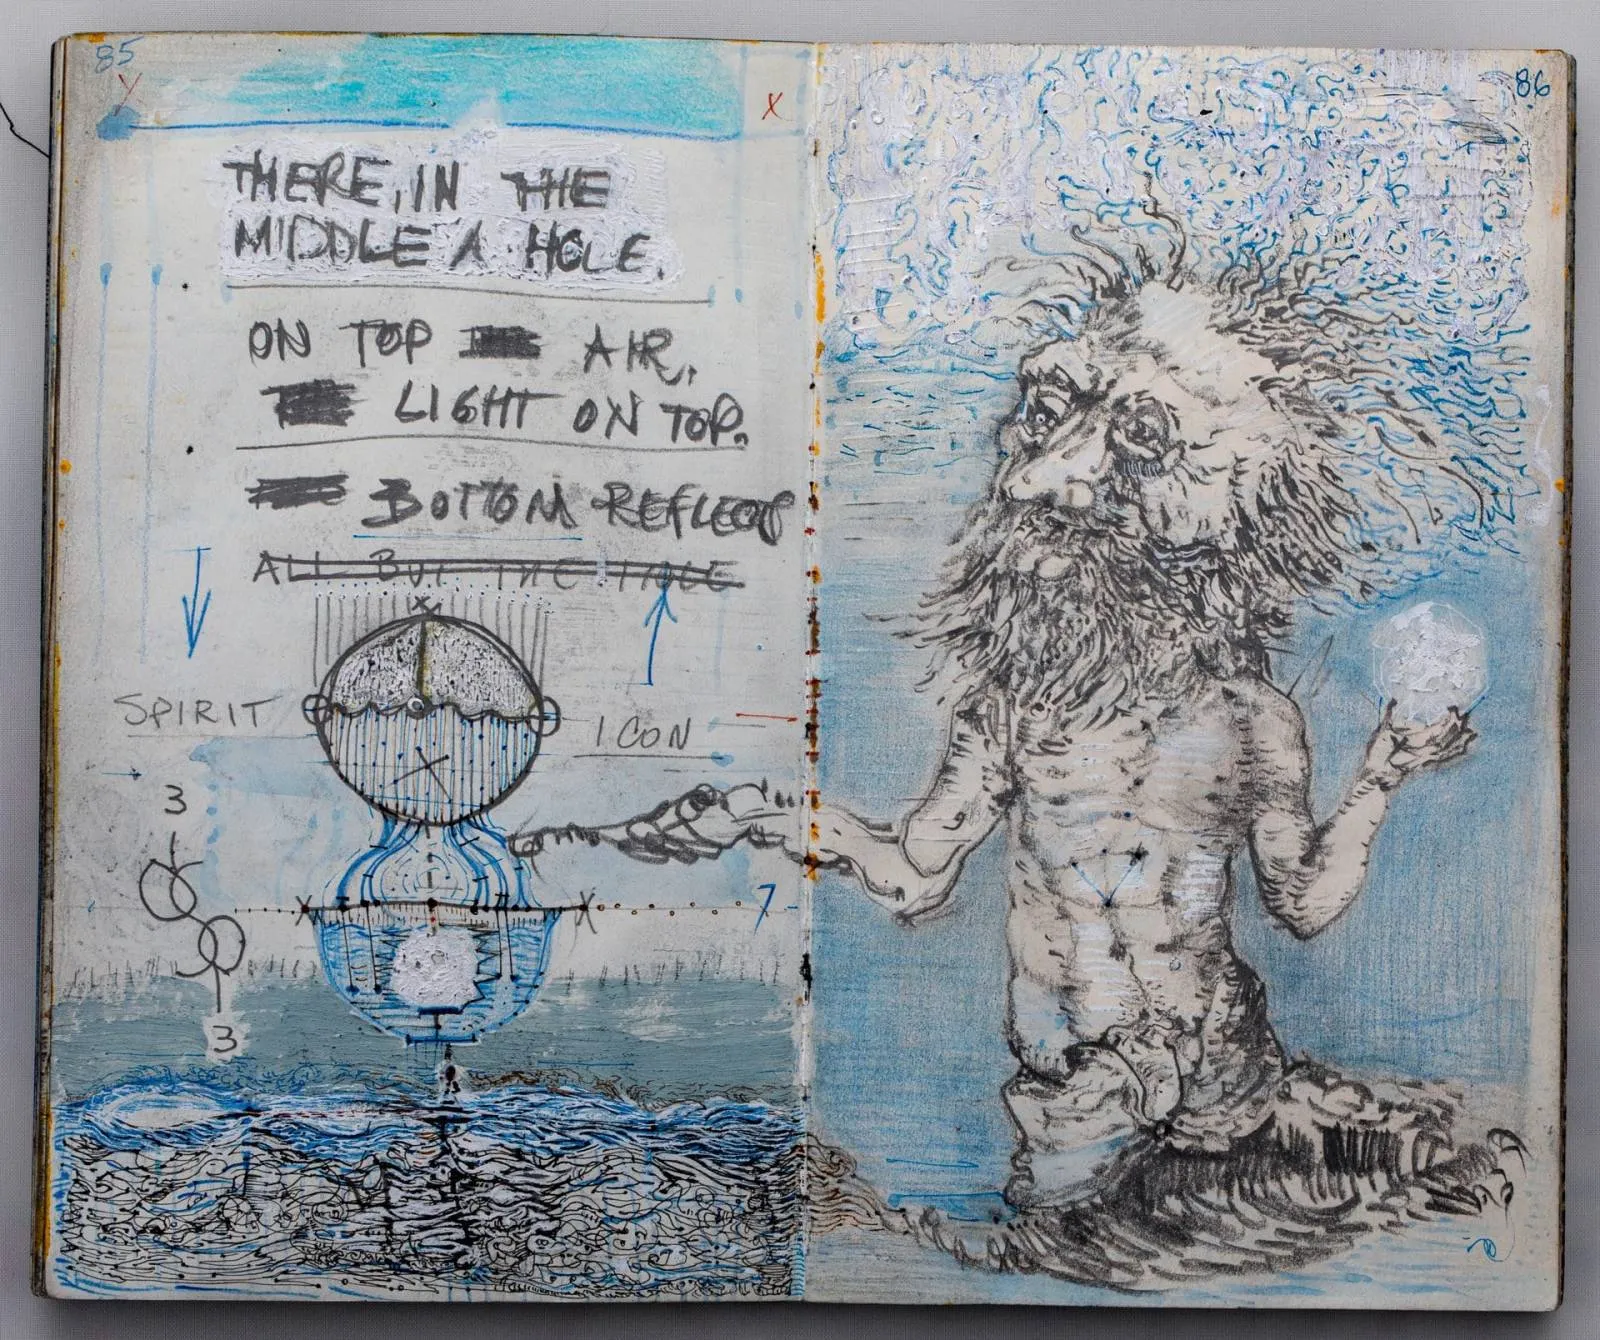 85
86
Y
X
THERE, IN THE
MIDDLE A HOLE.
ON TOP AIR,
LIGHT ON TOP.
BOTTOM REFLECTS
ALL BUT THE HOLE
X
SPIRIT
ICON
X
3
X X 7
3